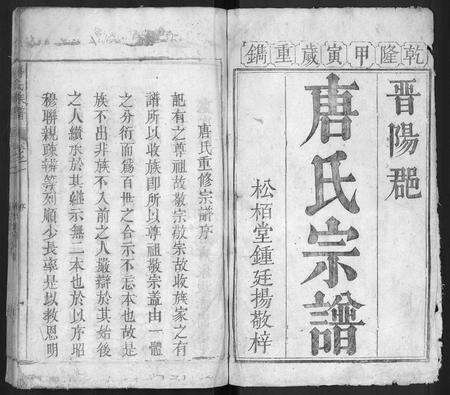 乾隆甲寅歲重鐫
晋陽郡
唐氏宗譜
松栢堂鍾廷揚敬梓
唐氏重修宗譜序
記有之尊祖故敬宗敬宗故收族家之有
譜所以收族即所以尊祖敬宗蓋由一體
之分衍而為百世之合示不忘本也故是
族不出非族不入前之人嚴辯於其始後
之人續承於其繼示無二本也於以序昭
穆聯親疎辨等列順少長率是以教恩明